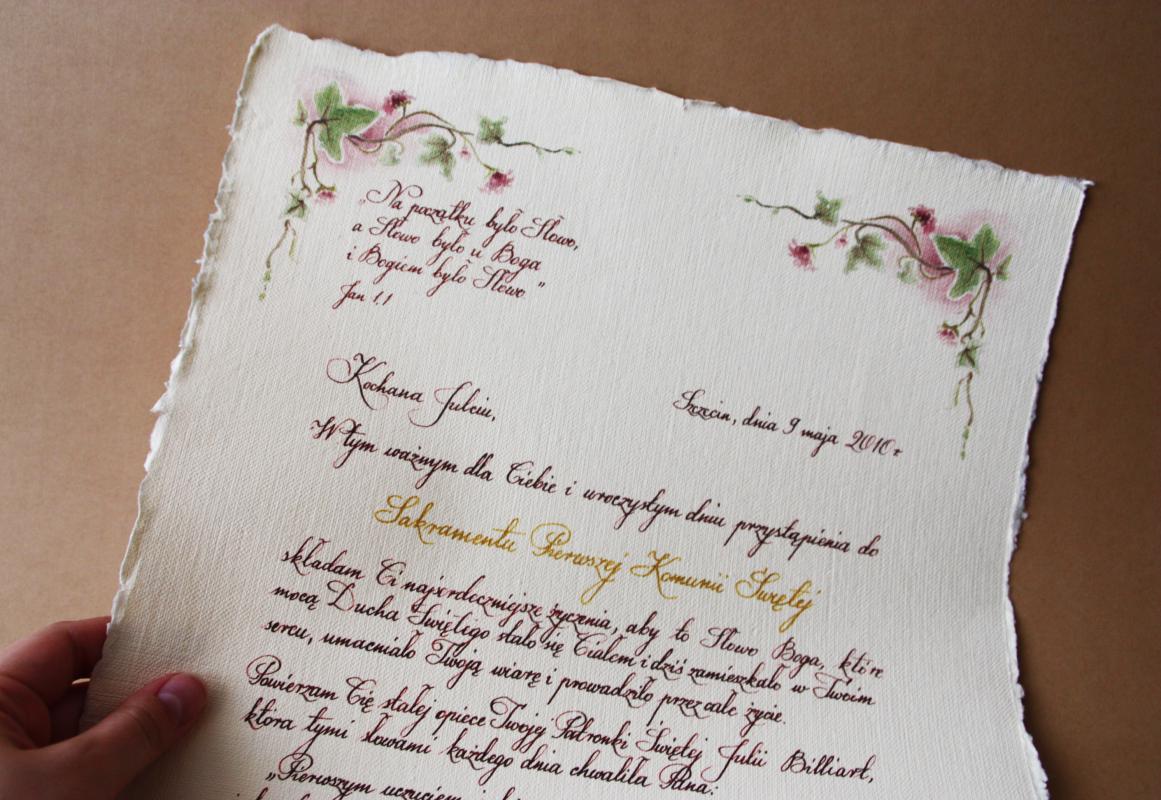 „Na początku było Słowo,
a Słowo było u Boga
i Bogiem było Słowo”
Jan 1,1
Szczecin, dnia 9 maja 2010r
Kochana Julciu,
W tym ważnym dla Ciebie i uroczystym dniu przystąpienia do
Sakramentu Pierwszej Komunii Świętej
składam Ci najserdeczniejsze życzenia, aby to Słowo Boga, które
mocą Ducha Świętego stało się Ciałem i dziś zamieszkało w Twoim
sercu, umacniało Twoją wiarę i prowadziło przez całe życie.
Powierzam Cię stałej opiece Twojej Patronki Świętej Julii Billiart,
która tymi słowami każdego dnia chwaliła Pana:
„Pierwszym uczuciem